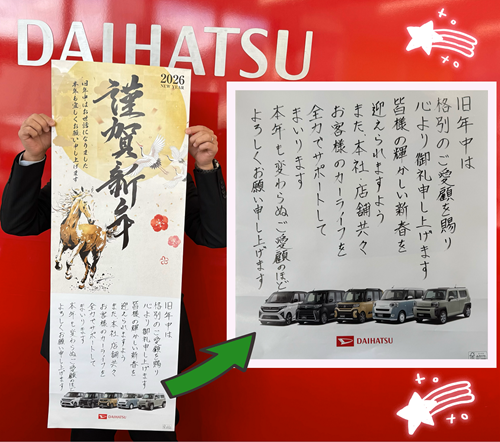 DAIHATSU
2026
NEW YEAR
謹賀新年
旧年中はお世話になりました
本年も宜しくお願い申し上げます
旧年中は
格別のご愛顧を賜り
心より御礼申し上げます
皆様の輝かしい新春を
迎えられますよう
また本社、店舗共々
お客様のカーライフを
全力でサポートして
まいります
本年も変わらぬご愛顧のほど
よろしくお願い申し上げます
DAIHATSU
旧年中は
格別のご愛顧を賜り
心より御礼申し上げます
皆様の輝かしい新春を
迎えられますよう
また本社、店舗共々
お客様のカーライフを
全力でサポートして
まいります
本年も変わらぬご愛顧のほど
よろしくお願い申し上げます
DAIHATSU